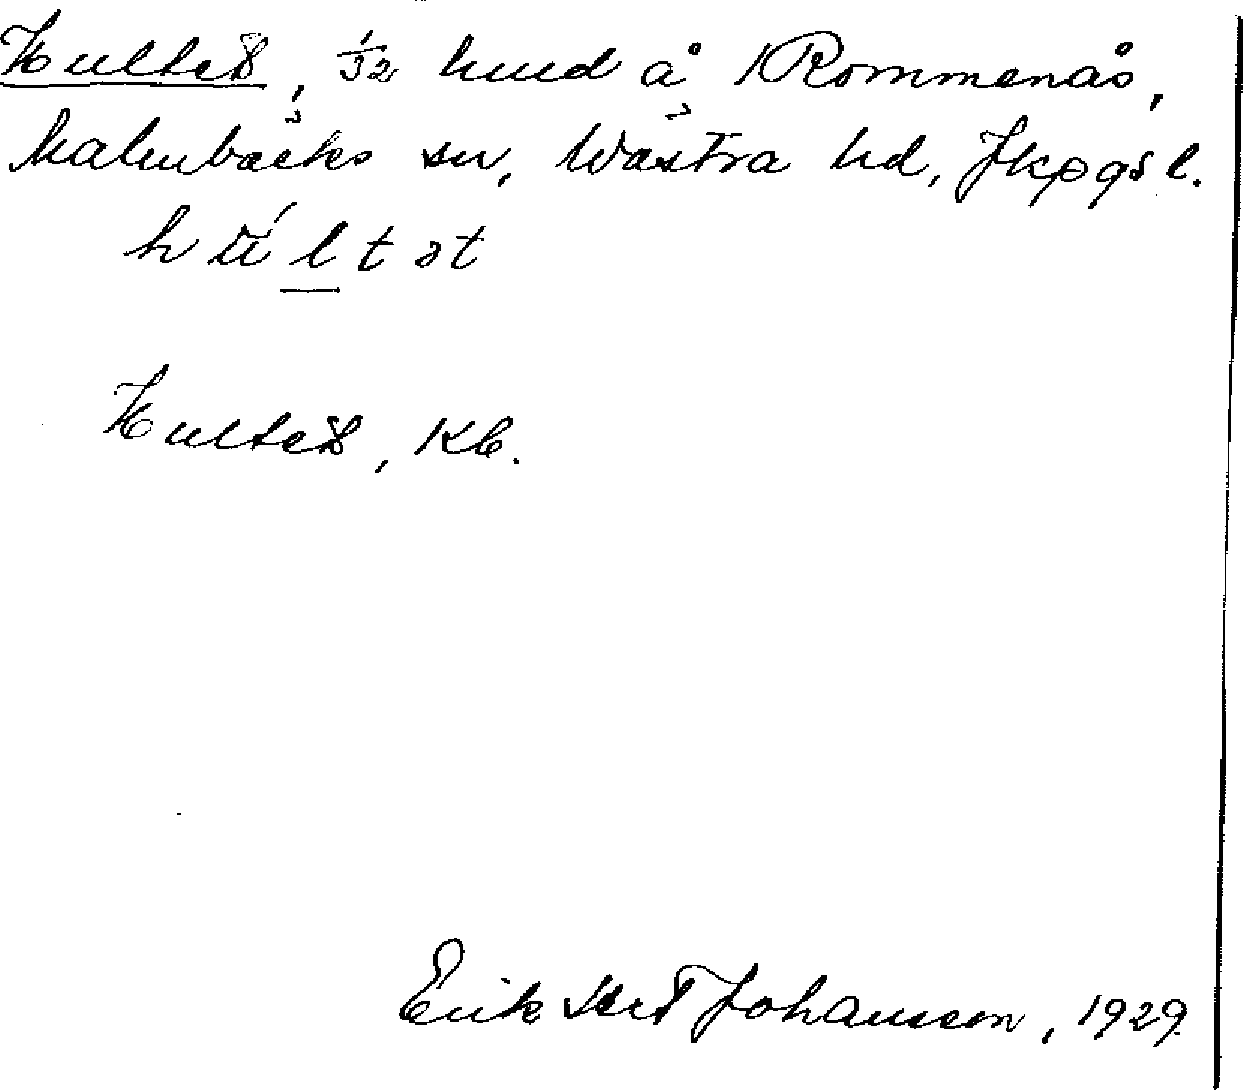 Hultet, 1/32 hmd å Rommenås,
Malmbäcks sn, Västra hd, Jkpgs l.
h ú l t ə t
Hultet, Kb.
Erik Johansson, 1929